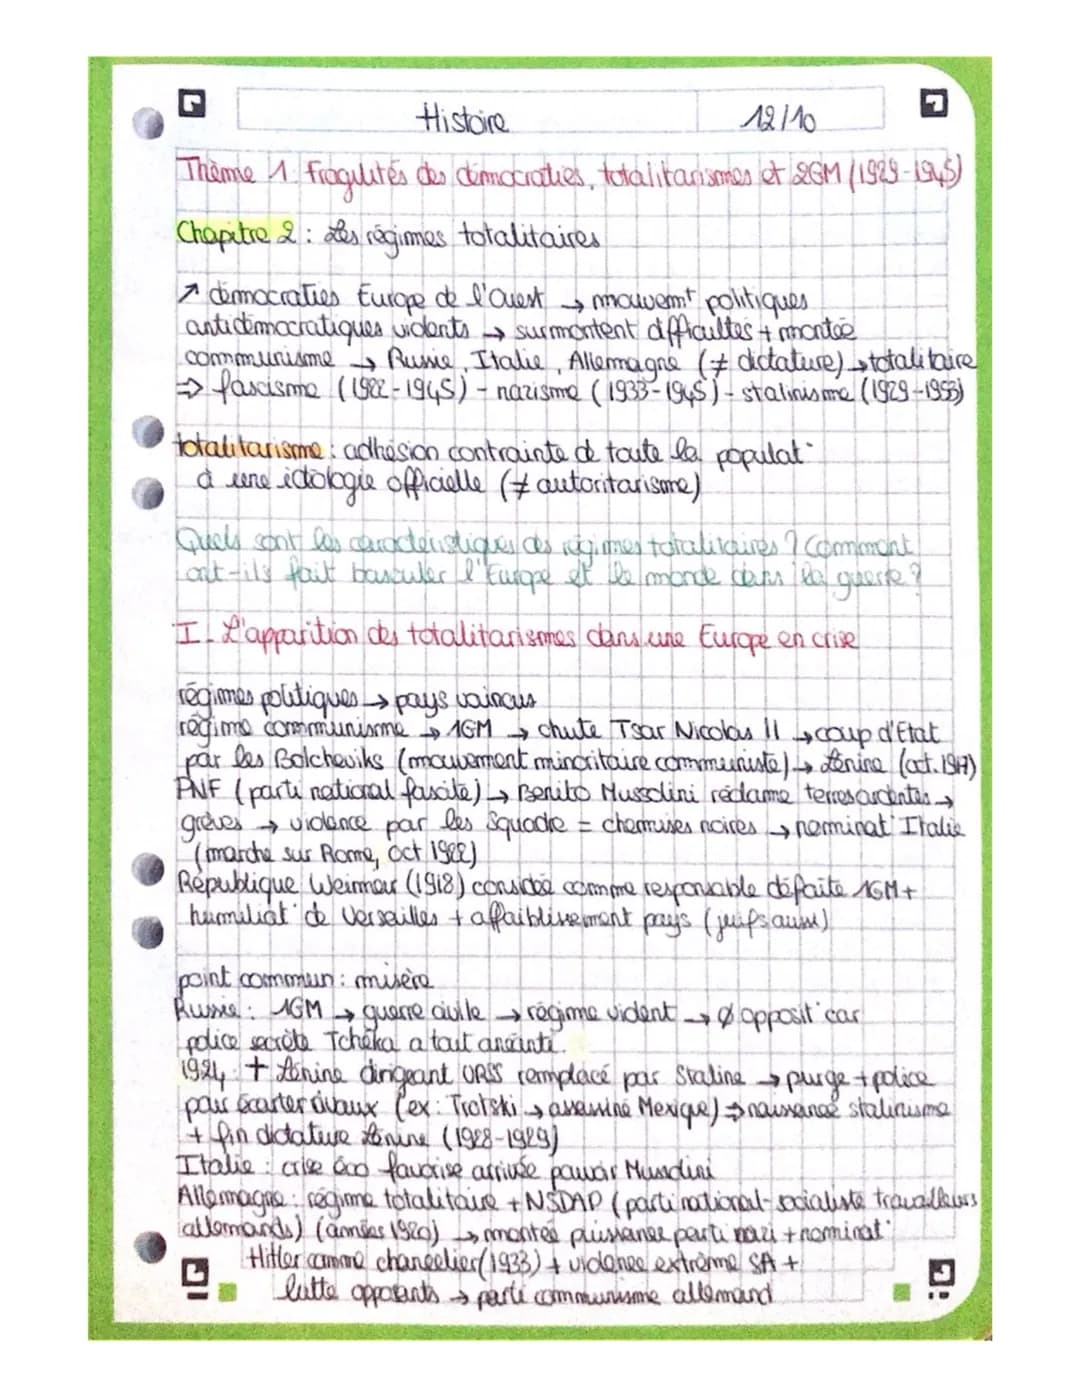 Histoire 12/10
Thème 1. Fragilités des démocraties, totalitarismes et 2GM (1929-1945)
Chapitre 2 : Les régimes totalitaires
↗ démocraties Europe de l'Ouest → mouvemt politiques
antidémocratiques violents → surmontent difficultés + montée
communisme → Russie, Italie, Allemagne (≠ dictature) → totalitaire
⇒ fascisme (1922-1945) - nazisme (1933-1945) - stalinisme (1929-1953)
totalitarisme : adhésion contrainte de toute la populat°
à une idéologie officielle (≠ autoritarisme)
Quels sont les caractéristiques des régimes totalitaires ? Comment
ont-ils fait basculer l'Europe et le monde dans la guerre ?
I - L'apparition des totalitarismes dans une Europe en crise
régimes politiques → pays vaincus
régime communisme → 1GM → chute Tsar Nicolas II → coup d'Etat
par les Bolcheviks (mouvement minoritaire communiste) → Lénine (oct. 1917)
PNF (parti national fasciste) → Benito Mussolini réclame terres →
grèves → violence par les Squadre = chemises noires → nominat° Italie
(marche sur Rome, Oct 1922)
République Weimar (1918) considé comme responsable défaite 1GM +
humiliat° de Versailles + affaiblissement pays (juifs aussi)
point commun : misère
Russie : 1GM → guerre civile → régime violent → Ø opposit° car
police secrète Tchéka a tout anéanti.
1924 : + Lénine dirigeant URSS remplacé par Staline → purge + police
pour écarter rivaux (ex : Trotski → assassiné Mexique) ⇒ naissance stalinisme
+ fin dictature Lénine (1928-1929)
Italie : crise éco favorise arrivée pouvoir Mussolini
Allemagne : régime totalitaire + NSDAP (parti national-socialiste travailleurs
allemands) (années 1920) → montée puissance parti nazi + nominat°
Hitler comme chancelier (1933) + violence extrême SA +
lutte opposants → parti communisme allemand